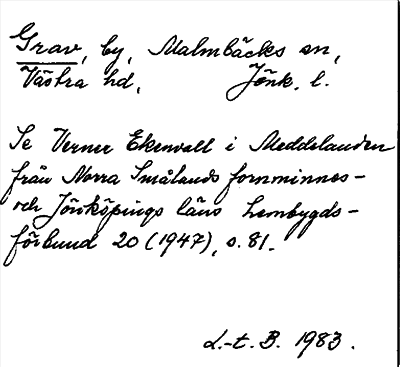 Grav, by, Malmbäcks sn,
Västra hd, Jönk. l.
Se Verner Ekenvall i Meddelanden
från Norra Smålands fornminnes-
och Jönköpings läns hembygds-
förbund 20 (1947), s. 81.
L.-t. B. 1983.